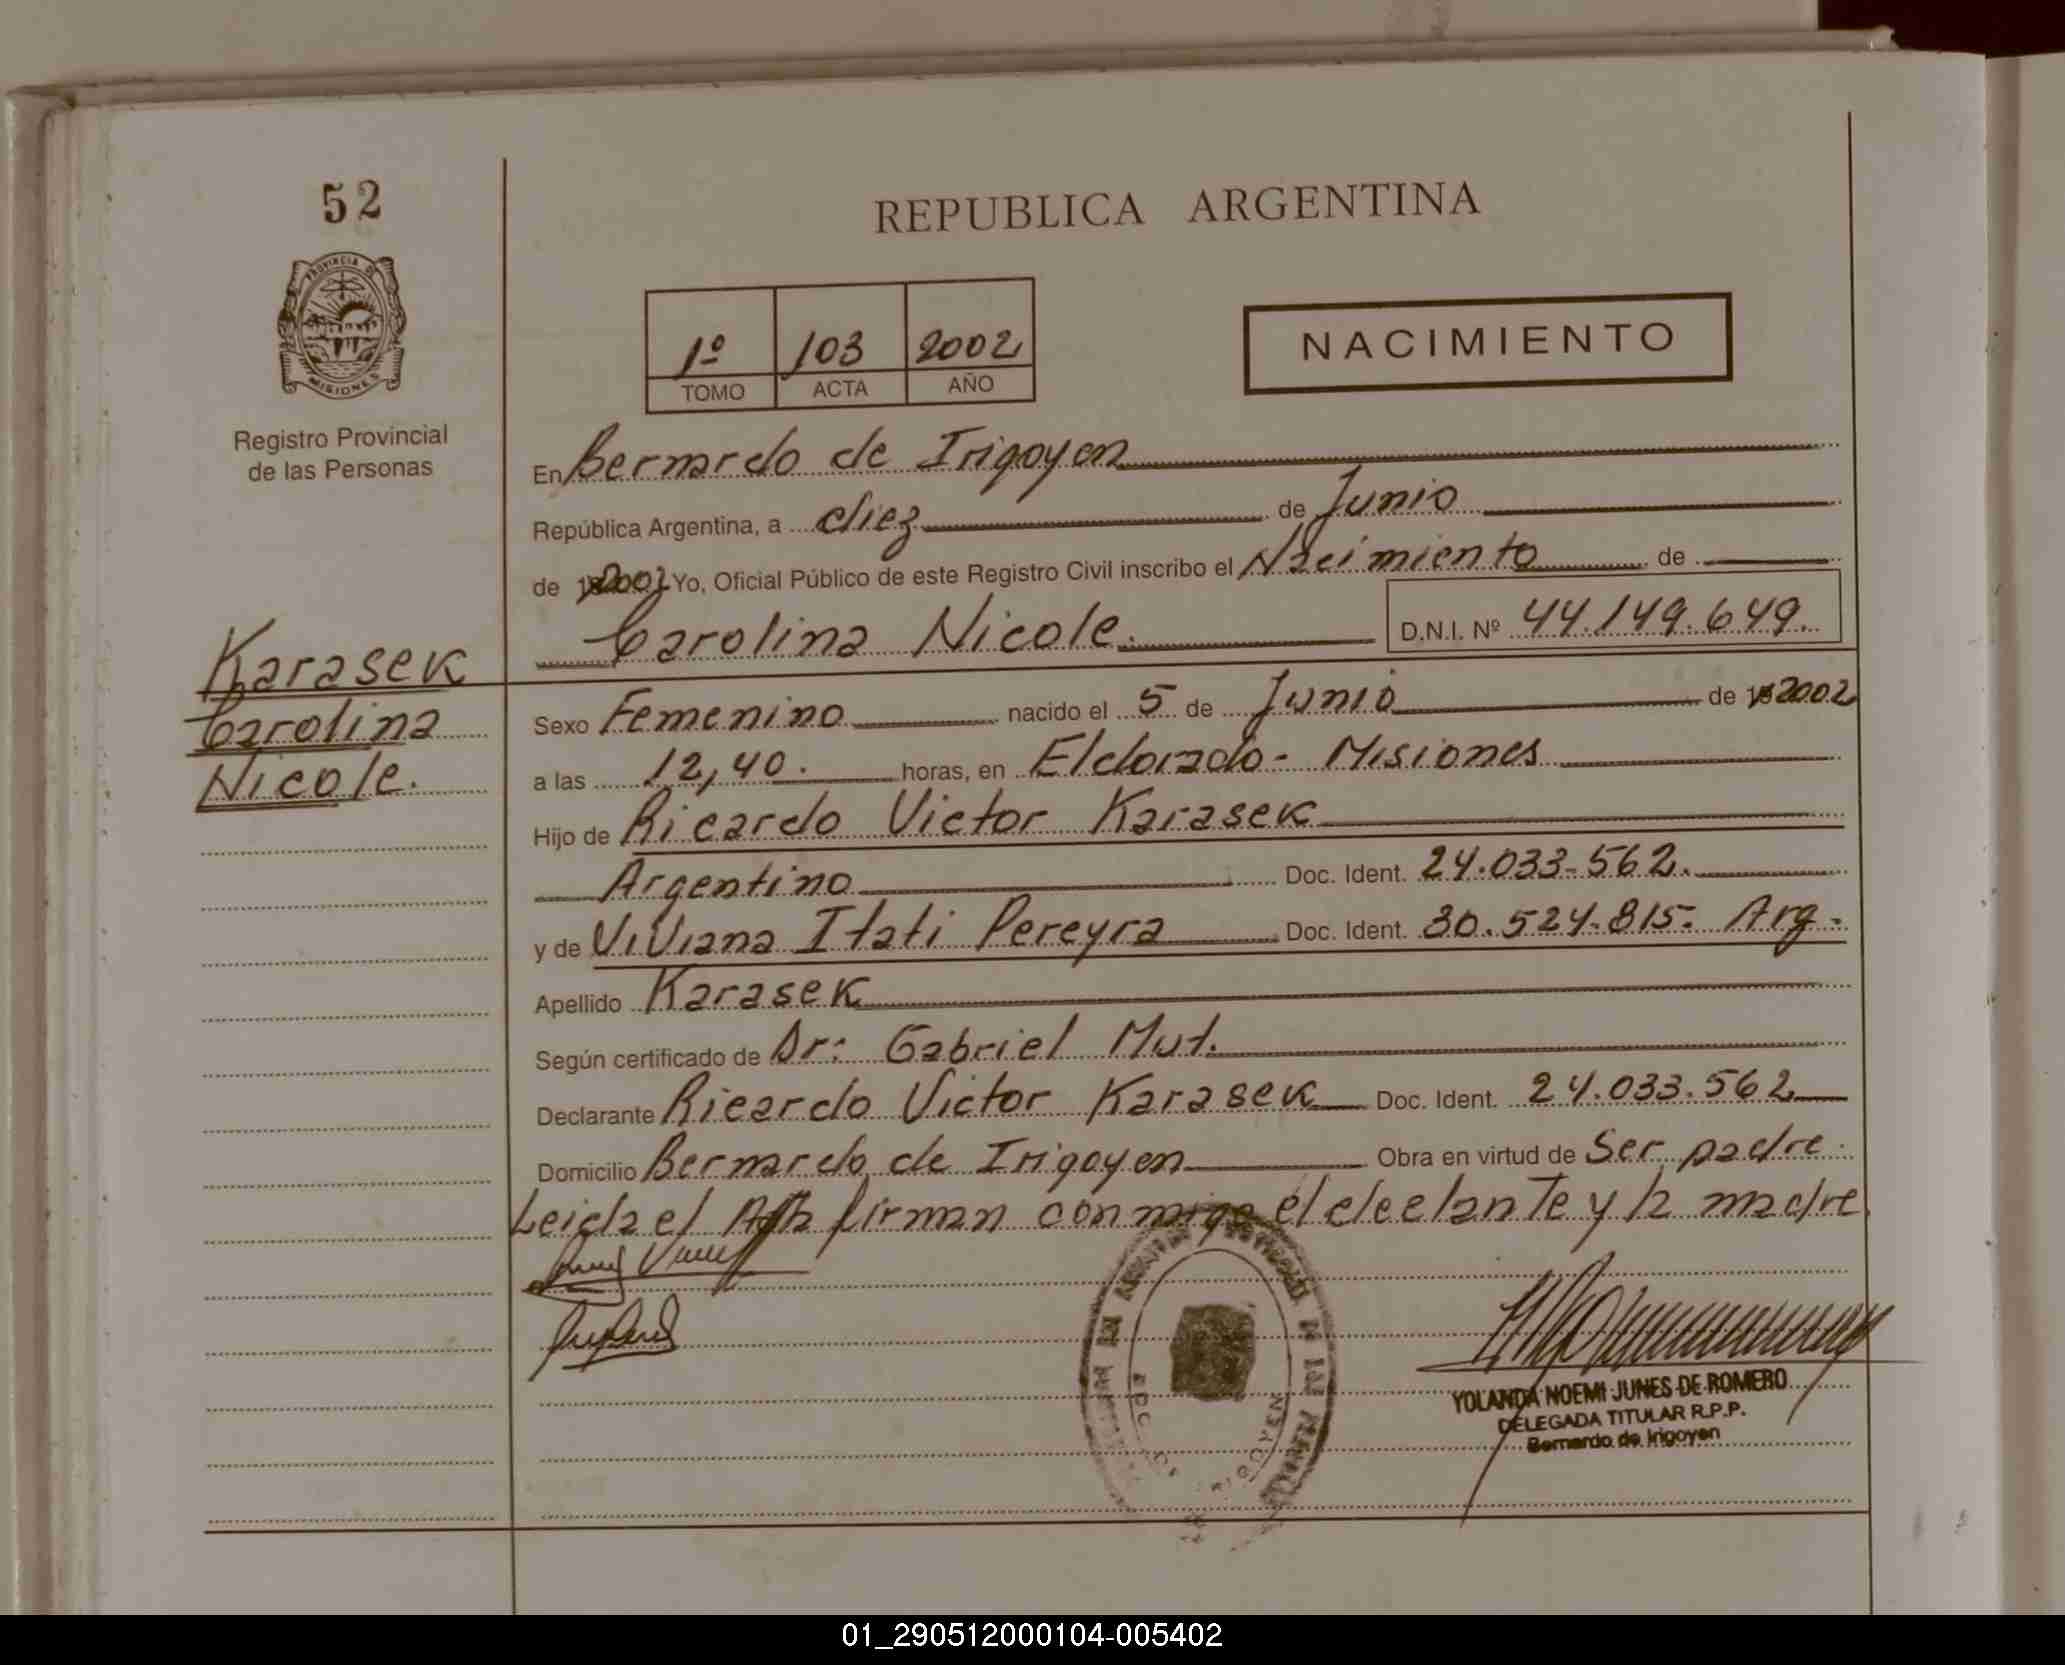 52
REPUBLICA ARGENTINA
PROVINCIA DE
MISIONES
1º 103 2002
TOMO ACTA AÑO
NACIMIENTO
Registro Provincial
de las Personas
En Bernardo de Irigoyen
República Argentina, a diez de Junio
de 2002 Yo, Oficial Público de este Registro Civil inscribo el Nacimiento de
Carolina Nicole. D.N.I. Nº 44.149.649.
Karasek
Carolina
Nicole.
Sexo Femenino nacido el 5 de Junio de 2002
a las 12,40. horas, en Eldorado - Misiones
Hijo de Ricardo Victor Karasek
Argentino Doc. Ident. 24.033.562.
y de Viviana Itati Pereyra Doc. Ident. 30.524.815. Arg.
Apellido Karasek
Según certificado de Dr: Gabriel Mut.
Declarante Ricardo Victor Karasek Doc. Ident. 24.033.562
Domicilio Bernardo de Irigoyen Obra en virtud de Ser padre.
Leida el Acta firman conmigo el declante y la madre
YOLANDA NOEMI JUNES DE ROMERO
DELEGADA TITULAR R.P.P.
Bernardo de Irigoyen
01_290512000104-005402